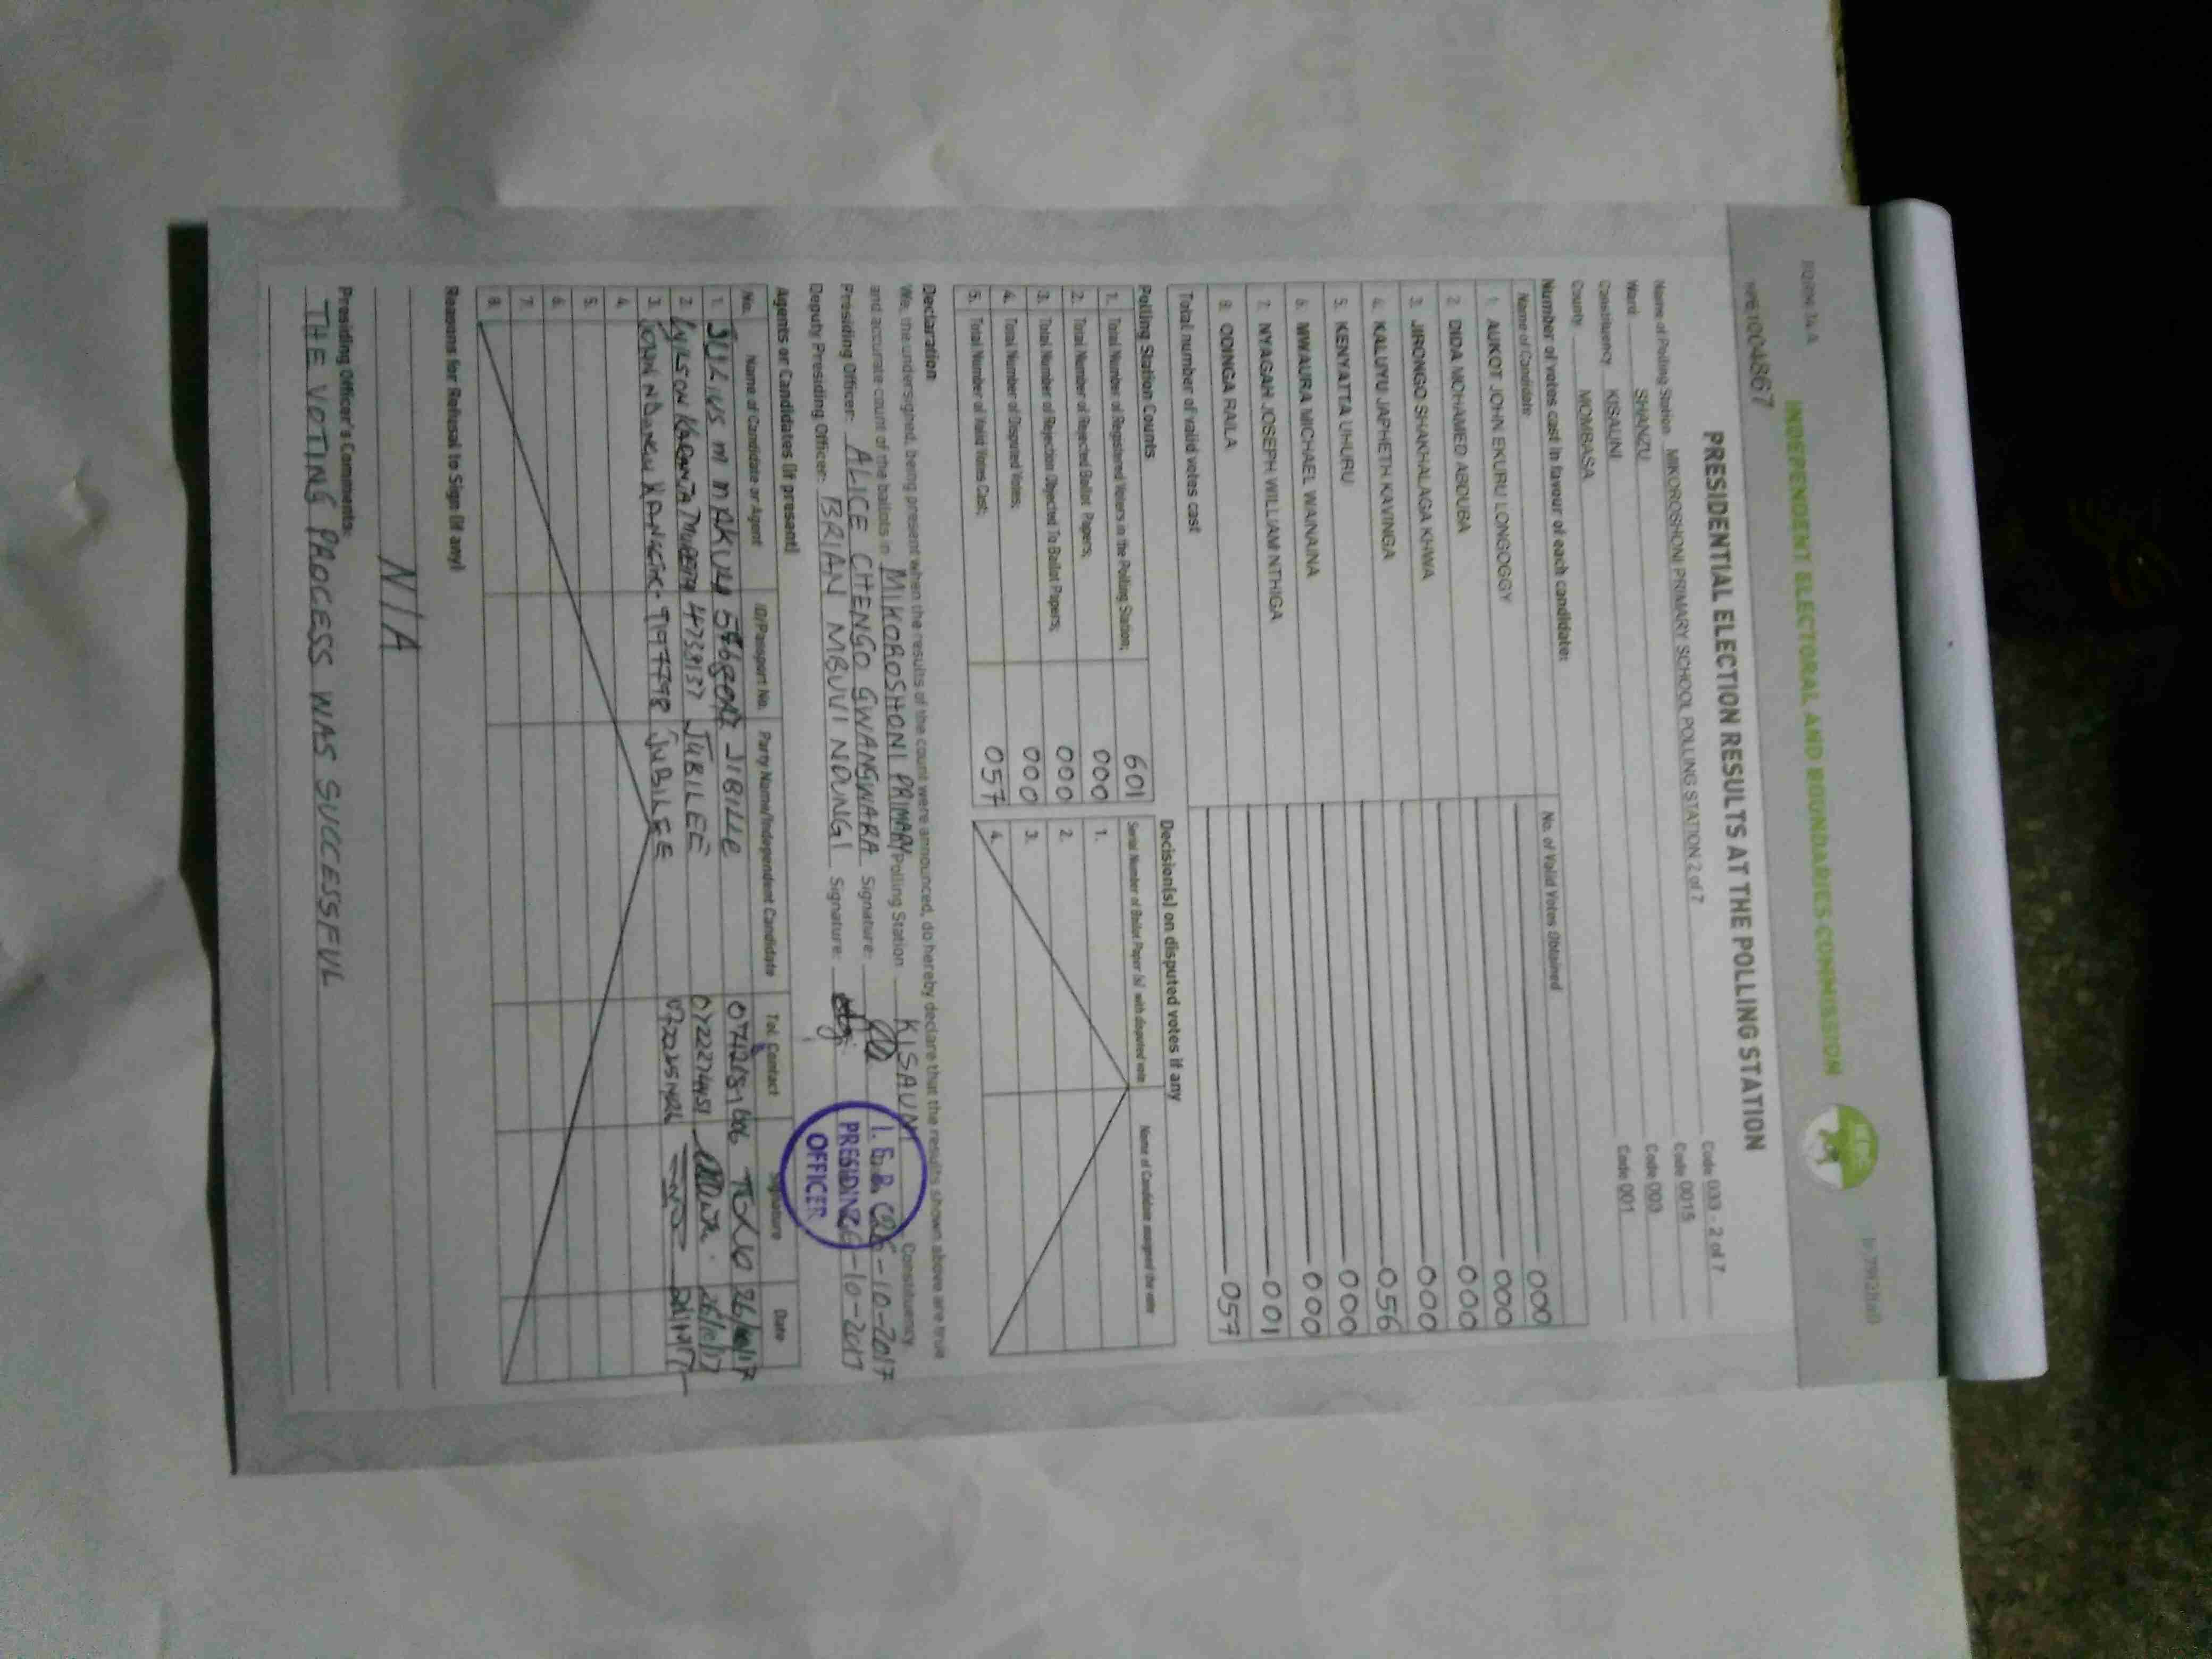 FORM 34A
INDEPENDENT ELECTORAL AND BOUNDARIES COMMISSION
PRESIDENTIAL ELECTION RESULTS AT THE POLLING STATION
Name of Polling Station MIKOROSHONI PRIMARY SCHOOL POLLING STATION 2 of 7 Code 033 - 2 of 7
Ward SHANZU Code 0015
Constituency KISAUNI Code 003
County MOMBASA Code 001
Number of votes cast in favour of each candidate:
Name of Candidate No. of Valid Votes Obtained
1. AUKOT JOHN EKURU LONGOGGY 000
2. DIDA MOHAMED ABDUBA 000
3. JIRONGO SHAKHALAGA KHWA 000
4. KALUYU JAPHETH KAVINGA 000
5. KENYATTA UHURU 056
6. MWAURA MICHAEL WAINAINA 000
7. NYAGAH JOSEPH WILLIAM NTHIGA 000
8. ODINGA RAILA 001
Total number of valid votes cast 057
Polling Station Counts
1. Total Number of Registered Voters in the Polling Station; 601
2. Total Number of Rejected Ballot Papers; 000
3. Total Number of Rejection Objected To Ballot Papers; 000
4. Total Number of Disputed Votes; 000
5. Total Number of Valid Votes Cast; 057
Decision(s) on disputed votes if any
Serial Number of Ballot Paper (s) with disputed vote Name of Candidate assigned the vote
1.
2.
3.
4.
Declaration
We, the undersigned, being present when the results of the count were announced, do hereby declare that the results shown above are true
and accurate count of the ballots in MIKOROSHONI PRIMARY Polling Station KISAUNI Constituency
Presiding Officer: ALICE CHENGO GWANGWARA Signature: 26-10-2017
Deputy Presiding Officer: BRIAN MBUVI NDUNGI Signature: 26-10-2017
I.E.B.C
PRESIDING
OFFICER
Agents or Candidates (if present)
No. Name of Candidate or Agent ID/Passport No. Party Name/Independent Candidate Tel. Contact Signature Date
1. JULIUS M
2. KARANTA 4739137 JUBILEE 0722274451 26/10/17
3. JOHN 9197798 JUBILEE
4.
5.
6.
7.
8.
Reasons for Refusal to Sign (if any)
N/A
Presiding Officer's Comments:
THE VOTING PROCESS WAS SUCCESSFUL